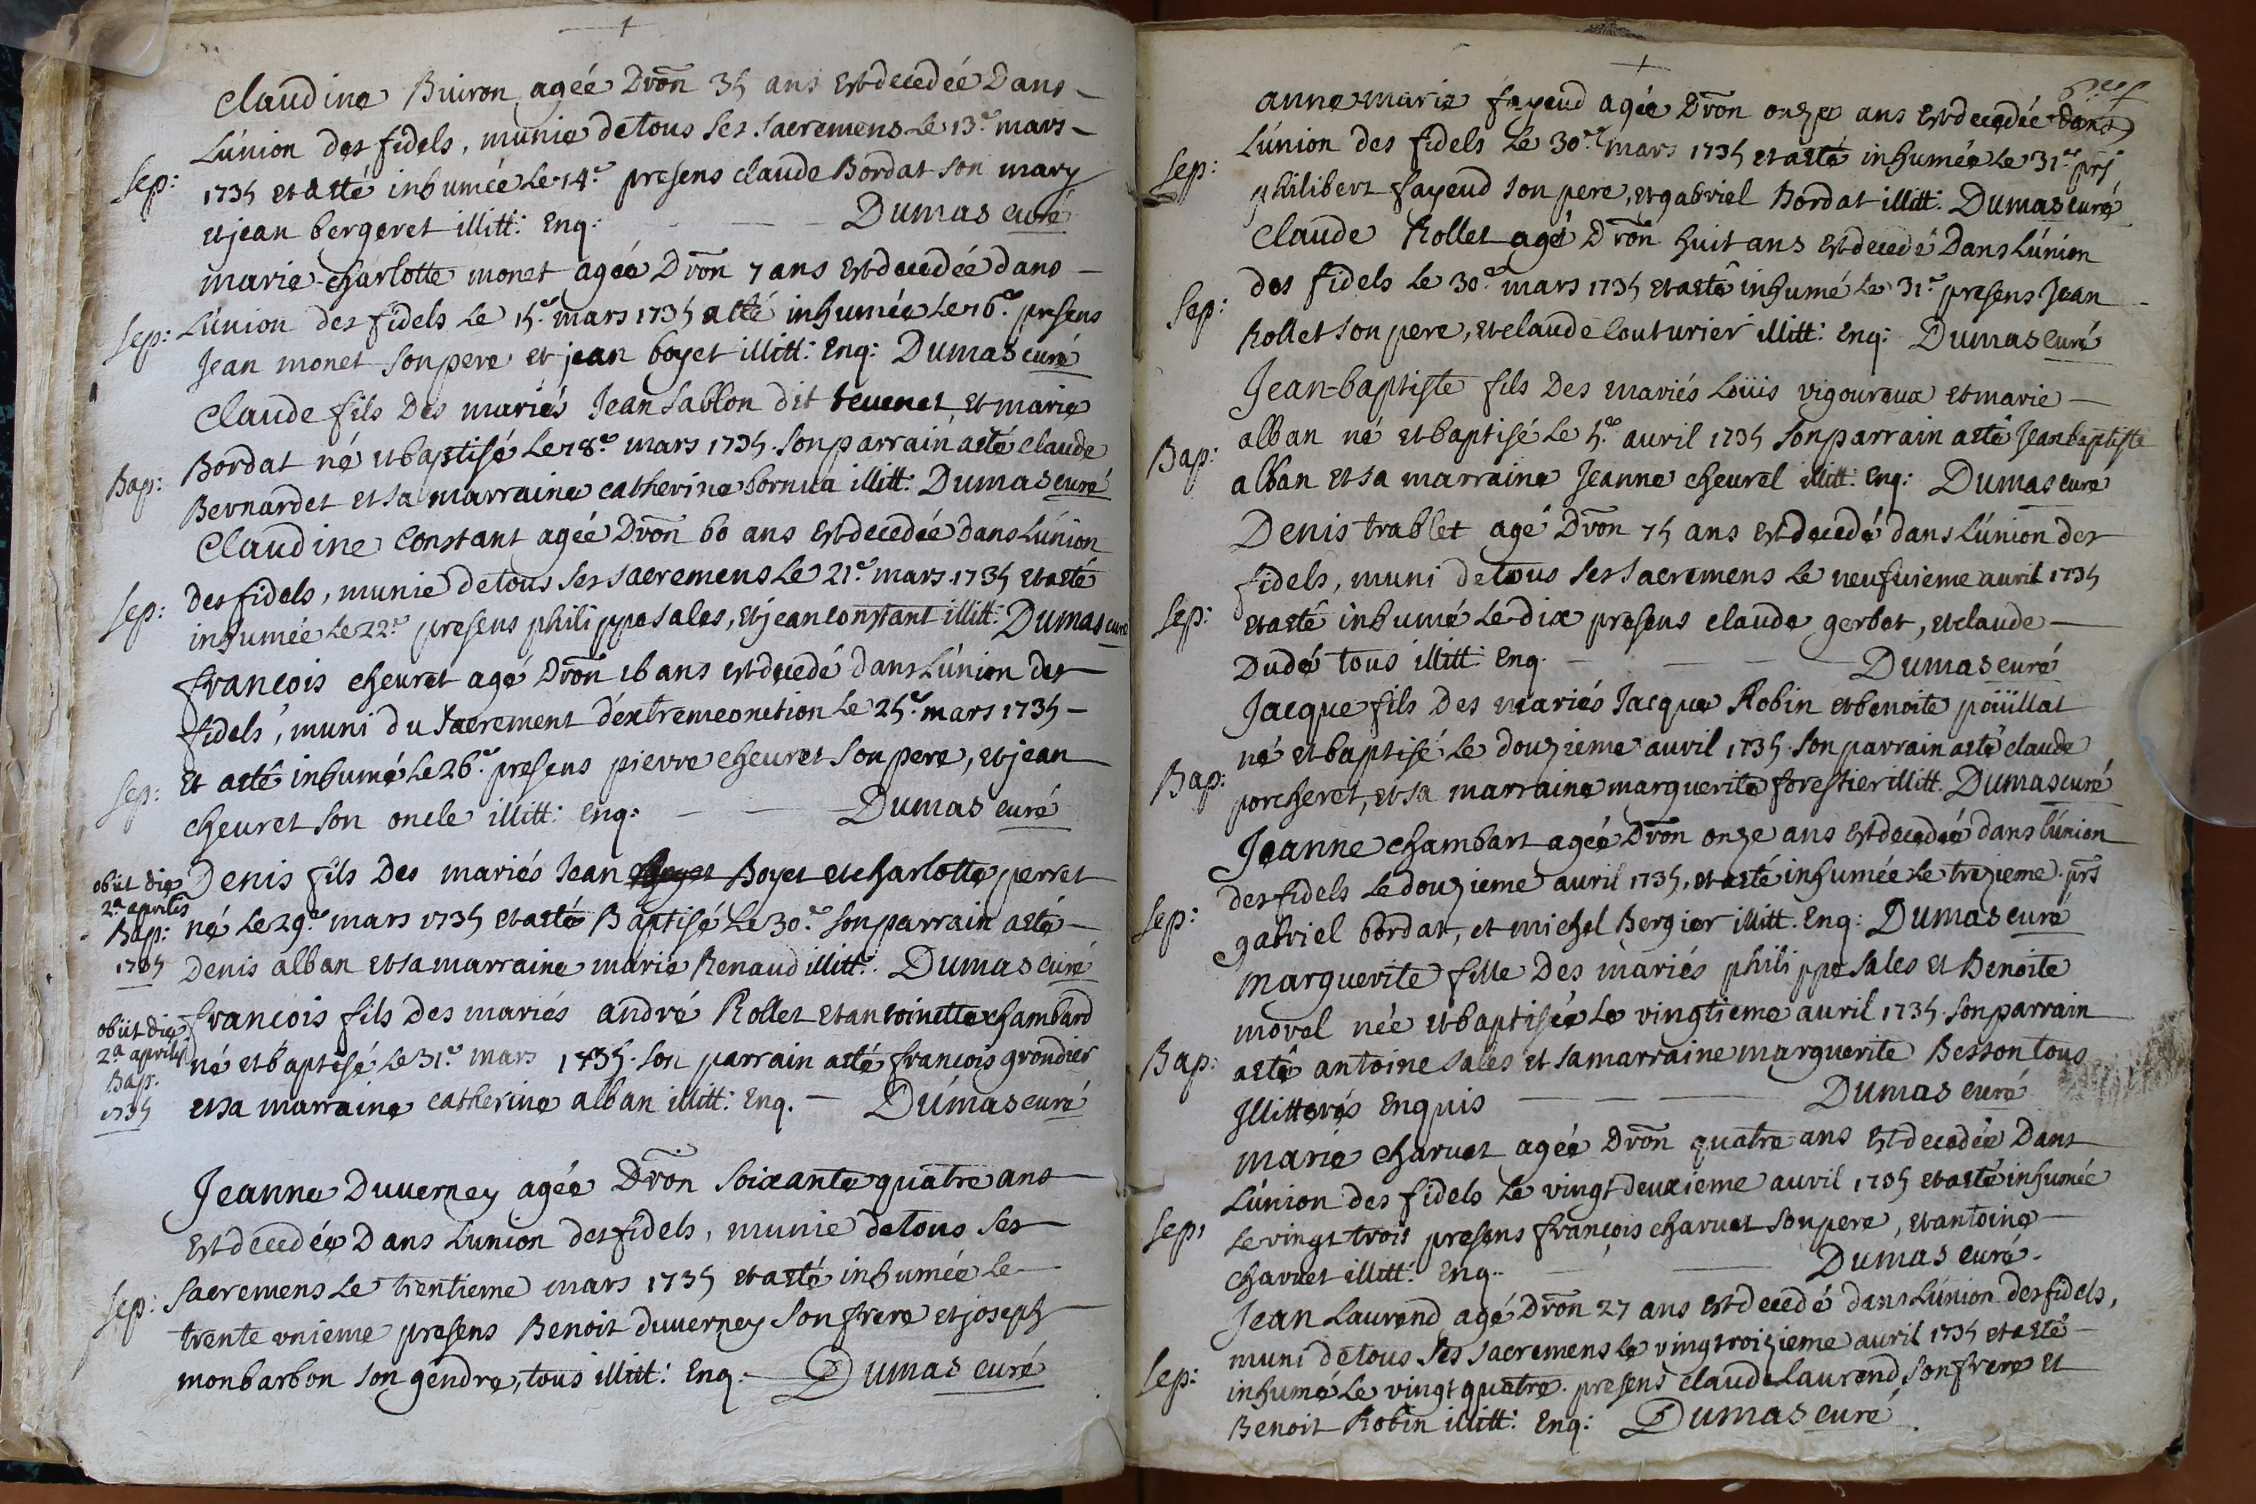 Claudine Buiron agée Dvrōn 35 ans Est decedée Dans
L'union des fidels, munie de tous ses sacremens Le 13.e mars
Sep: 1735 et a esté inhumée Le 14.e presens claude Bordat son mary
et jean bergeret illitt: Enq: Dumas curé
marie charlotte monet agée Dvrōn 7 ans Est decedée dans
Sep: L'union des fidels Le 15.e mars 1735 a esté inhumée Le 16.e presens
Jean monet son pere et jean boyet illitt: Enq: Dumas curé
Claude fils Des mariés Jean Sablon dit tevenet et marie
Bap: Bordat né et baptisé Le 18.e mars 1735. Son parrain a esté claude
Bernardet et sa marraine catherine illitt: Dumas curé
Claudine Constant agée Dvrōn 60 ans Est decedée dans L'union
Sep: des fidels, munie de tous ses sacremens Le 21.e mars 1735 et a esté
inhumée Le 22.e presens philippe sales, et jean constant illitt: Dumas curé
francois cheuret agé Dvrōn 16 ans est decedé dans L'union des
fidels, muni du Sacrement d'extremeonction Le 25.e mars 1735
Sep: Et a esté inhumé Le 26.e presens pierre cheuret son pere, et jean
cheuret son oncle illitt: Enq: Dumas curé
obiit die 2.a aprilis 1735
Bap: Denis fils Des mariés Jean Boyet et charlotte perret
né Le 29.e mars 1735 et a esté Baptisé Le 30.e son parrain a esté
Denis alban et sa marraine marie Renaud illitt: Dumas curé
obiit die 2.a aprilis 1735
Bap. francois fils des mariés andré Rollet et antoinette chambard
né et baptisé Le 31.e mars 1735. Son parrain a esté francois grondier
et sa marraine catherine alban illitt: Enq. Dumas curé
Jeanne Duverney agée Dvrōn soixante quatre ans
Est decedée Dans L'union des fidels, munie de tous ses
Sep: sacremens Le trentieme mars 1735 et a esté inhumée Le
trente vnieme presens Benoit duverney son frere et joseph
monbarbon son gendre, tous illitt: Enq. Dumas curé
anne marie fayend agée Dvrōn onze ans Est decedée dans
Sep: L'union des fidels Le 30.e mars 1735 et a esté inhumée Le 31.e prs
philibert fayend son pere, et gabriel Bordat illitt: Dumas curé
Claude Rollet agé Dvrōn huit ans Est decedé Dans L'union
Sep: des fidels Le 30.e mars 1735 et a esté inhumé Le 31.e presens Jean
Rollet son pere, et claude couturier illitt: Enq: Dumas curé
Jean-baptiste fils Des mariés Loüis vigoureux et marie
Bap: alban né et baptisé Le 5.e avril 1735 Son parrain a esté Jean baptiste
alban et sa marraine Jeanne cheurel illitt: Enq: Dumas curé
Denis trablet agé Dvrōn 75 ans est decedé dans L'union des
fidels, muni de tous ses sacremens Le neufuieme avril 1735
Sep: et a esté inhumé Le dix presens claude gerbet, et claude
Dudé tous illitt: Enq. Dumas curé
Jacque fils Des mariés Jacque Robin et benoite poüillat
Bap: né et baptisé Le douzieme avril 1735. Son parrain a esté claude
porcheret, et sa marraine marguerite forestier illitt. Dumas curé
Jeanne chambart agée Dvrōn onze ans Est decedée dans L'union
Sep: des fidels Le douzieme avril 1735, et a esté inhumée Le trezieme. prs
gabriel bordat, et michel Bergier illitt. Enq: Dumas curé
Marguerite fille Des mariés philippe sales et Benoite
morel née et baptisée Le vingtieme avril 1735. Son parrain
Bap: a esté antoine sales et sa marraine marguerite Besson tous
Illitterés Enquis Dumas curé
Marie charuet agée Dvrōn quatre ans Est decedée Dans
L'union des fidels Le vingt deuxieme avril 1735 et a esté inhumée
Sep: Le vingt trois presens françois charuet son pere, et antoine
charuet illitt: Enq. Dumas curé.
Jean Laurend agé Dvrōn 27 ans Est decedé dans L'union des fidels,
muni de tous ses sacremens Le vingtroizieme avril 1735 et a esté
Sep: inhumé Le vingt quatre. presens claude Laurend son frere et
Benoit Robin illitt: Enq: Dumas curé